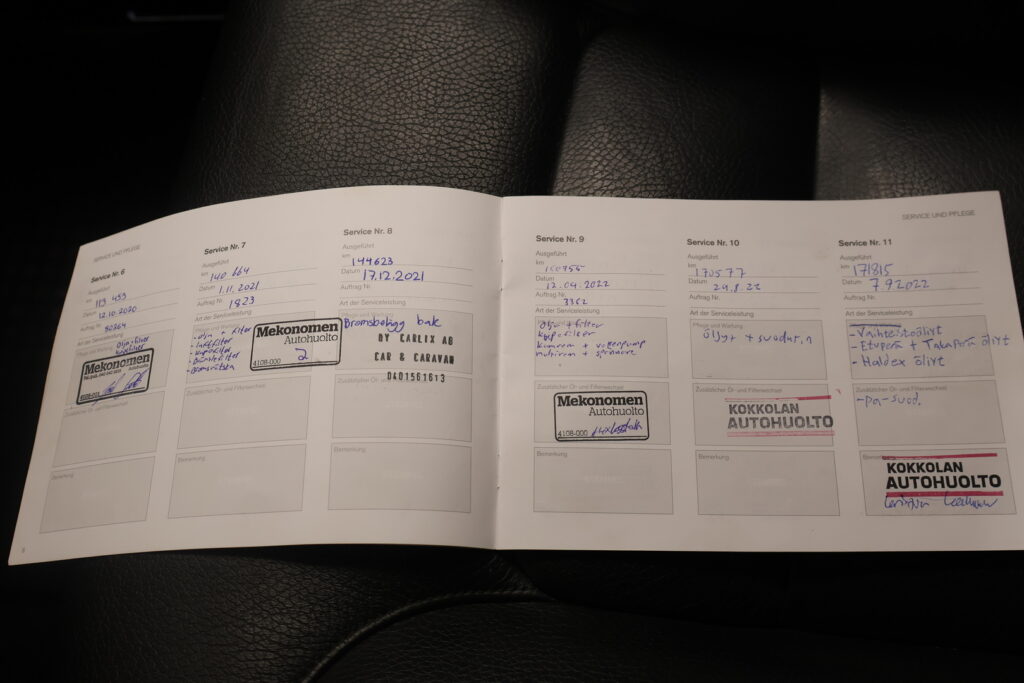 SERVICE UND PFLEGE
Service Nr. 6
Ausgeführt
km 113 433
Datum 12.10.2020
Auftrag Nr. 90264
Art der Serviceleistung
Pflege und Wartung
Olja + filter
kupefilter
Mekonomen
Autohuolto
4108-000
Zusätzlicher Öl- und Filterwechsel
Bemerkung
8
Service Nr. 7
Ausgeführt
km 140 664
Datum 1.11.2021
Auftrag Nr. 1823
Art der Serviceleistung
Pflege und Wartung
- olja + filter
- luftfilter
- kupefilter
- Bränslefilter
- Bromsvätska
Mekonomen
Autohuolto
4108-000
Zusätzlicher Öl- und Filterwechsel
Bemerkung
Service Nr. 8
Ausgeführt
km 144623
Datum 17.12.2021
Auftrag Nr.
Art der Serviceleistung
Bromsbelägg bak
BY CARLIX AB
CAR & CARAVAN
0401561613
Zusätzlicher Öl- und Filterwechsel
Bemerkung
SERVICE UND PFLEGE
Service Nr. 9
Ausgeführt
km
Datum 12.04.2022
Auftrag Nr. 3362
Art der Serviceleistung
Pflege und Wartung
Olja + filter
kupefilter
kamrem + vattenpump
multirem + spännare
Zusätzlicher Öl- und Filterwechsel
Mekonomen
Autohuolto
4108-000
Bemerkung
Service Nr. 10
Ausgeführt
km 170577
Datum 29.8.22
Auftrag Nr.
Art der Serviceleistung
Pflege und Wartung
öljyt + suodat.n
Zusätzlicher Öl- und Filterwechsel
KOKKOLAN
AUTOHUOLTO
Bemerkung
Service Nr. 11
Ausgeführt
km 171815
Datum 7 9 2022
Auftrag Nr.
Art der Serviceleistung
- Vaihteistoölivt
- Etuperä + Takaperä ölivt
- Haldex ölivt
Zusätzlicher Öl- und Filterwechsel
- pa-suod.
KOKKOLAN
AUTOHUOLTO